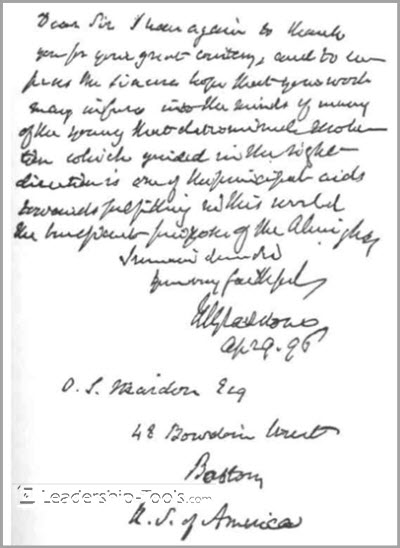 Dear Sir I have again to thank
you for your great courtesy, and to ex-
press the sincere hope that your work
may infuse into the minds of many
of the young that determined resolu-
tion which guided in the right
direction is one of the principal aids
towards fulfilling in this world
the beneficent purpose of the Almighty
I remain dear Sir
Your very faithful
WEGladstone
Ap 29. 96
O. S. Marden Esq
48 Bowdoin Street
Boston
U. S. of America
Leadership-Tools.com